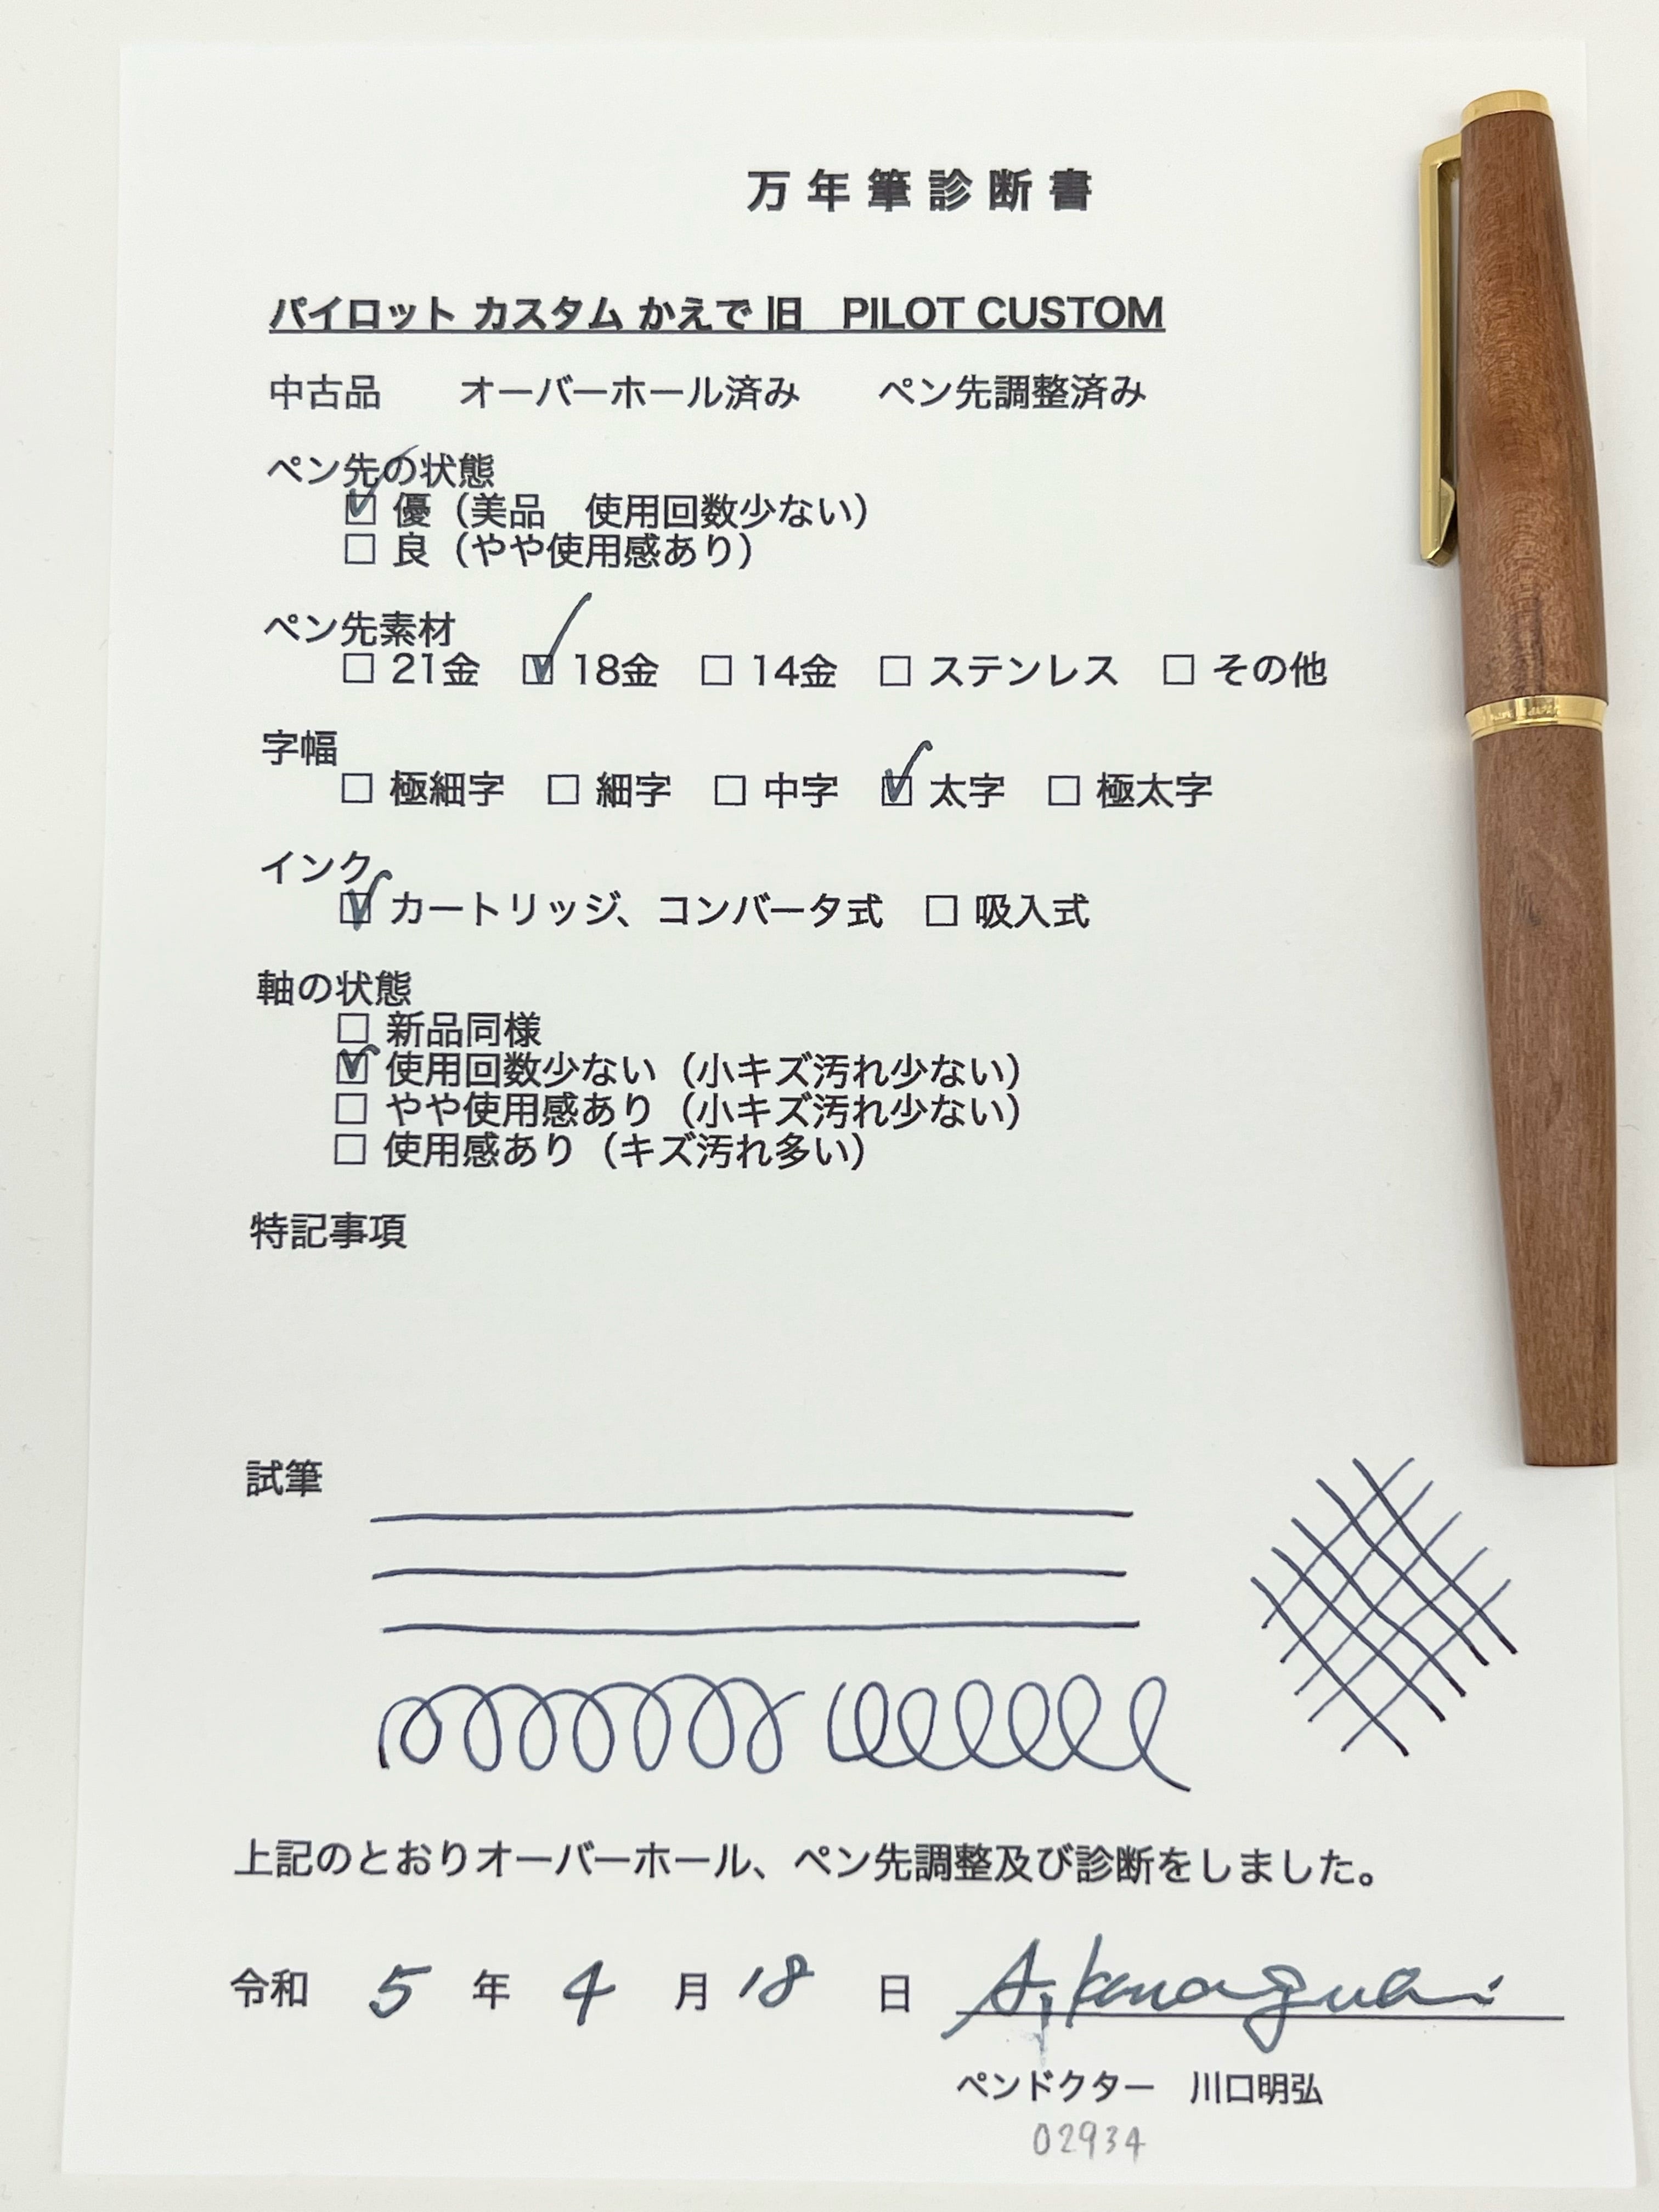 万年筆診断書
パイロット カスタム かえで 旧　PILOT CUSTOM
中古品　　オーバーホール済み　　ペン先調整済み
ペン先の状態
☑ 優（美品　使用回数少ない）
☐ 良（やや使用感あり）
ペン先素材
☐ 21金　☑ 18金　☐ 14金　☐ ステンレス　☐ その他
字幅
☐ 極細字　☐ 細字　☐ 中字　☑ 太字　☐ 極太字
インク
☑ カートリッジ、コンバータ式　☐ 吸入式
軸の状態
☐ 新品同様
☑ 使用回数少ない（小キズ汚れ少ない）
☐ やや使用感あり（小キズ汚れ少ない）
☐ 使用感あり（キズ汚れ多い）
特記事項
試筆
上記のとおりオーバーホール、ペン先調整及び診断をしました。
令和 5 年 4 月 18 日 A. Kawaguchi
ペンドクター　川口明弘
02934